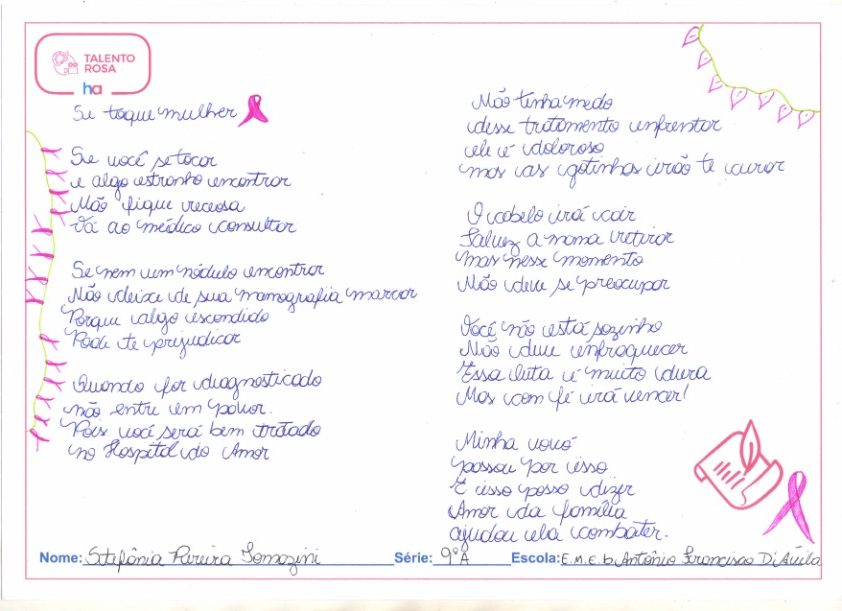 TALENTO
ROSA
ha
Se toque mulher
Se você se tocar
e algo estranho encontrar
Não fique receosa
Vá ao médico consultar
Se nem um nódulo encontrar
Não deixe de sua mamografia marcar
Porque algo escondido
Pode te prejudicar
Quando for diagnosticado
não entre em pavor.
Pois você será bem tratado
no Hospital do Amor
Não tenha medo
desse tratamento enfrentar
ele é doloroso
mas as gotinhas irão te curar
O cabelo irá cair
Talvez a mama retirar
mas nesse momento
Não deve se preocupar
Você não está sozinho
Não deve enfraquecer
Essa luta é muito dura
Mas com fé irá vencer!
Minha vovó
passou por isso
E isso posso dizer
Amor da família
ajudou ela combater.
Nome: Stefânia Pereira Tomazini Série: 9ºA Escola: E.m.e.b Antônio Francisco D'Ávila